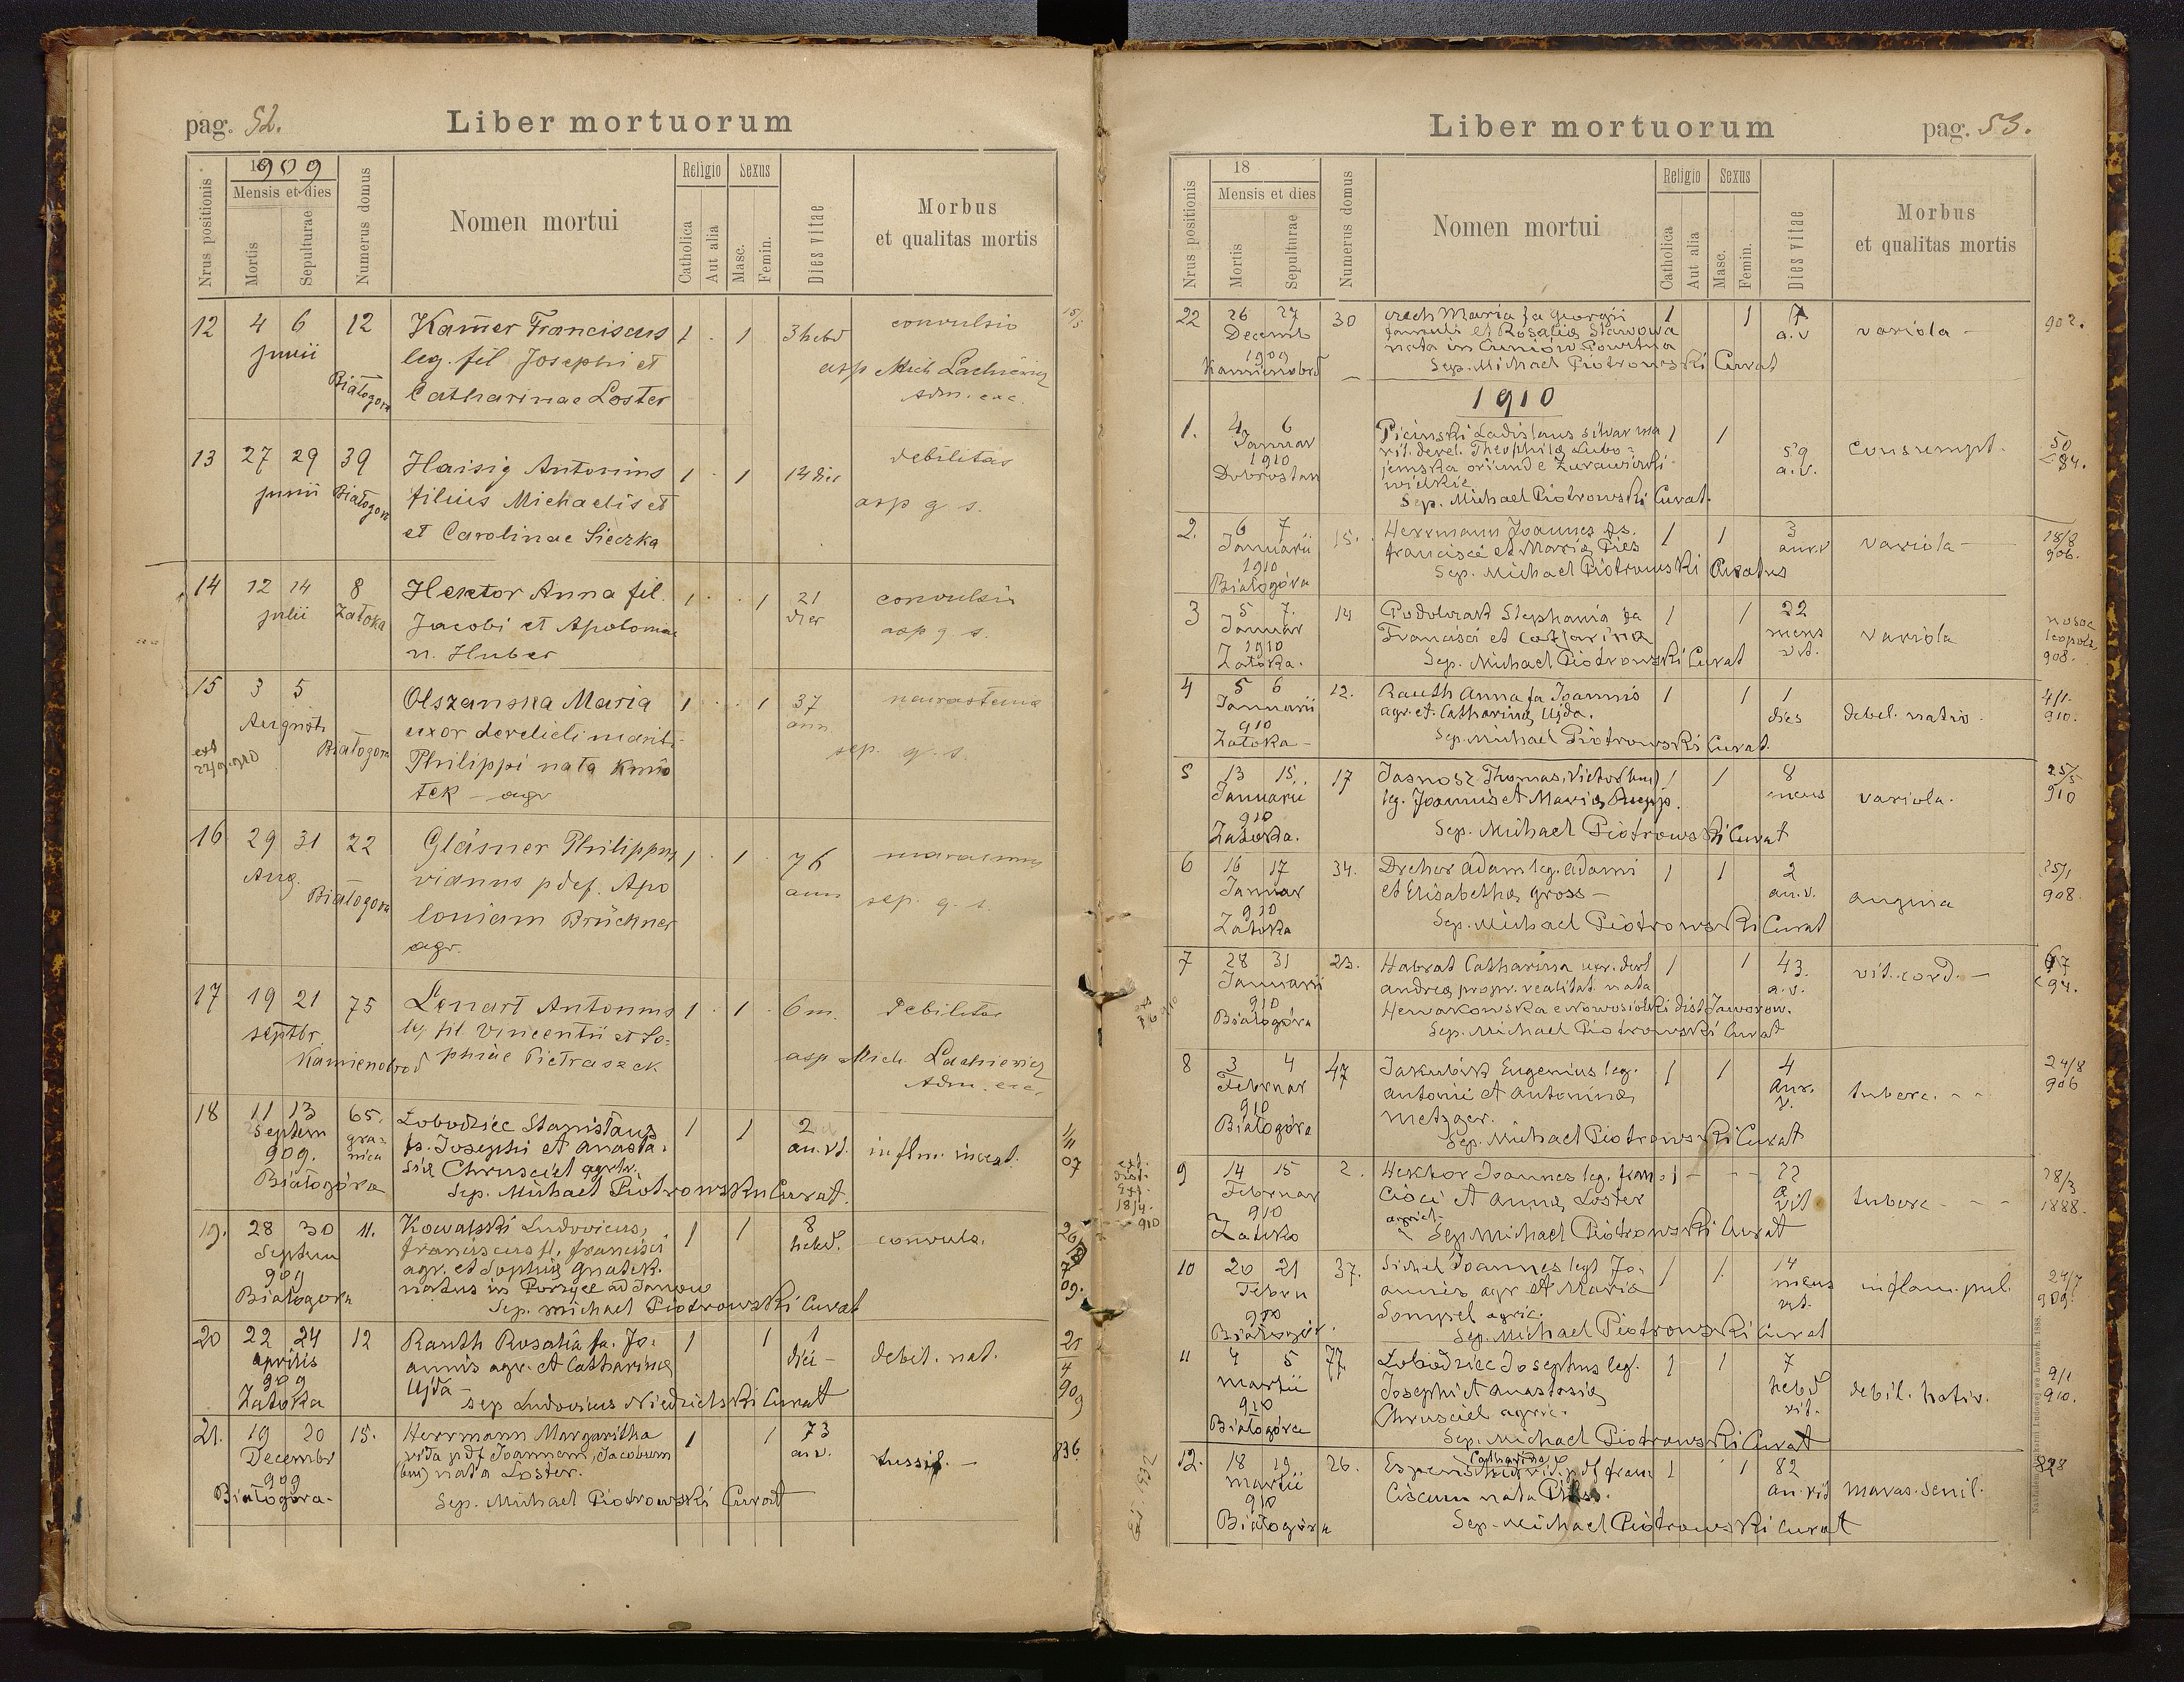 pag. 52.
Liber mortuorum
1909
Mensis et dies
Nrus positionis
Mortis
Sepulturae
Numerus domus
Nomen mortui
Religio
Catholica
Aut alia
Sexus
Masc.
Femin.
Dies vitae
Morbus
et qualitas mortis
12 4 6 12 Kamer Franciscus 1 . 1 3 hebd convulsio
junii leg. fil Josephi et asp Mich Lachiewicz
Białogora Catharinae Loster Adm. exc.
13 27 29 39 Haisig Antonius 1 . 1 14 dies debilitas
junii Białogora filius Michaelis et asp q s.
et Carolinae Sieczka
14 12 14 8 Hektor Anna fil. 1 . . 1 21 convulsio
julii Zatoka Jacobi et Apoloniae dies asp q. s.
n. Huber
15 3 5 Olszanska Maria 1 . . 1 37 neurastenia
Augusti uxor derelicti mariti ann
Białogora Philippi nata Kmio sep. q. s.
ext 22/9 910 tek - agr
16 29 31 22 Gläsner Philippus 1 . 1 . 76 marasmus
Aug. viduus p def. Apo ann
Białogora loniam Brückner sep. q. s.
agr.
17 19 21 75 Lenart Antonius 1 . 1 . 6 m. debilitas
septbr. leg. fil. Vincentii et So-
Kamienobrod phiae Pietraszek asp Mich. Lachiewicz
Adm. exc.
18 11 13 65. Lobodziec Stanisłaus 1 1 2
Septem gra- fs. Josephi et Anasta- an. vt. inflm. intest.
909. nica sia Chrusciel agrlr.
Białogóra Sep. Michael Piotrowski Curat.
19. 28 30 11. Kowalski Ludovicus, 1 1 8 convuls.
Septem franciscus fl. francisci hebd.
909 agr. et Sophia Gnatek.
Białogora natus in Porzyce ad Janow
Sep. michael Piotrowski Curat
20 22 24 12 Rauth Rosalia fa. Jo- 1 1 1 debil. nat. 21
aprilis annis agr. et Catharina diei - 4
909 Ujda - 909
Zatoka sep Ludovicus Niedzielski Curat
21. 19 20 15. Herrmann Margaritha 1 1 73 tussis. - 836
Decembr vida pdf Joannem, Jacobum an.
909 (bin) nata Loster.
Białogóra. Sep. Michael Piotrowski Curat
Liber mortuorum
pag. 53.
18
Mensis et dies
Nrus positionis
Mortis
Sepulturae
Numerus domus
Nomen mortui
Religio
Catholica
Aut alia
Sexus
Masc.
Femin.
Dies vitae
Morbus
et qualitas mortis
22 26 27 30 Maria fa Georgii 1 1 7 variola - 902.
Decemb famuli et Rosalia Stawowa a.v
1909 nata in
Kamienobrd Sep. Michael Piotrowski Curat
1910
1. 4 6 Picinski Ladislaus silvar ma 1 1 59 Consumpt. 50
Januar rit. derel. Theophila Lubo- a.v. 84.
1910 jemska oriunde Zurawiczki
Dobrostan wielkie
Sep. Michael Piotrowski Curat.
2. 6 7 15. Herrmann Joannes fs. 1 1 3 variola - 18/8
Januarii francisci et Maria Pies ann.v 906.
1910 Sep. Michael Piotrowski Curatus
Białogóra
3 5 7. 14 Stephania fa 1 1 22 variola
Januar Francisci et Catharina mens
1910 Sep. Michael Piotrowski Curat vt. 908.
Zatoka.
4 5 6 12. Rauth Anna fa Joannis 1 1 1 debel. nativ. 4/1.
Januarii agr. et. Catharina Ujda. dies 910.
910 Sep. Michael Piotrowski Curat.
Zatoka -
5 13 15. 17 Jasnosz Thomas, Victor (bin) 1 1 8 variola. 25/5
Januarii leg. Joannis et Maria mens 910
910 Sep. Michael Piotrowski Curat
Zatoka.
6 16 17 34. Dreher Adam leg. Adami 1 1 2 angina 25/1
Januar et Elisabetha Gross - an.v. 908.
910 Sep. Michael Piotrowski Curat
Zatoka
7 28 31 23. Habrat Catharina uxr. derl 1 1 43. vit. cord. - 67
Januarii andrea propr. realitat. nata a.v. 94.
910 Hewakowska e Nowosiolki dist Jaworow.
Białogóra Sep. Michael Piotrowski Curat
8 3 4 47 Jakubik Eugenius leg. 1 1 4 tuberc. - - 24/8
Februar antonii et antonina ann. 906
910 metzger. v.
Białogóra Sep. Michael Piotrowski Curat
9 14 15 2. Hektor Joannes leg. fran- 1 - - - 22 tuberc - - 28/3
Februar cisci et Anna Loster a 1888.
910 agricl. vit
Zatoka Sep Michael Piotrowski Curat
10 20 21 37. Sichel Joannes legt Jo- 1 1. 14 inflam. pul. 24/7
Februar annis agr et Maria mens 909.
910 Sompel agric. vt.
Białogór. Sep. Michael Piotrowski Curat
11 4 5 77. Lobodziec Josephus leg. 1 1 7 debil. nativ. 9/1
martii Josephi et Anastasia hebd 910.
910 Chrusciel agric. vit.
Białogóra Sep. Michael Piotrowski Curat
12. 18 19 26. Catharina 1 1 82 maras. senil. 828
martii ciscum nata an. vit
910 Sep. Michael Piotrowski Curat
Białogóra